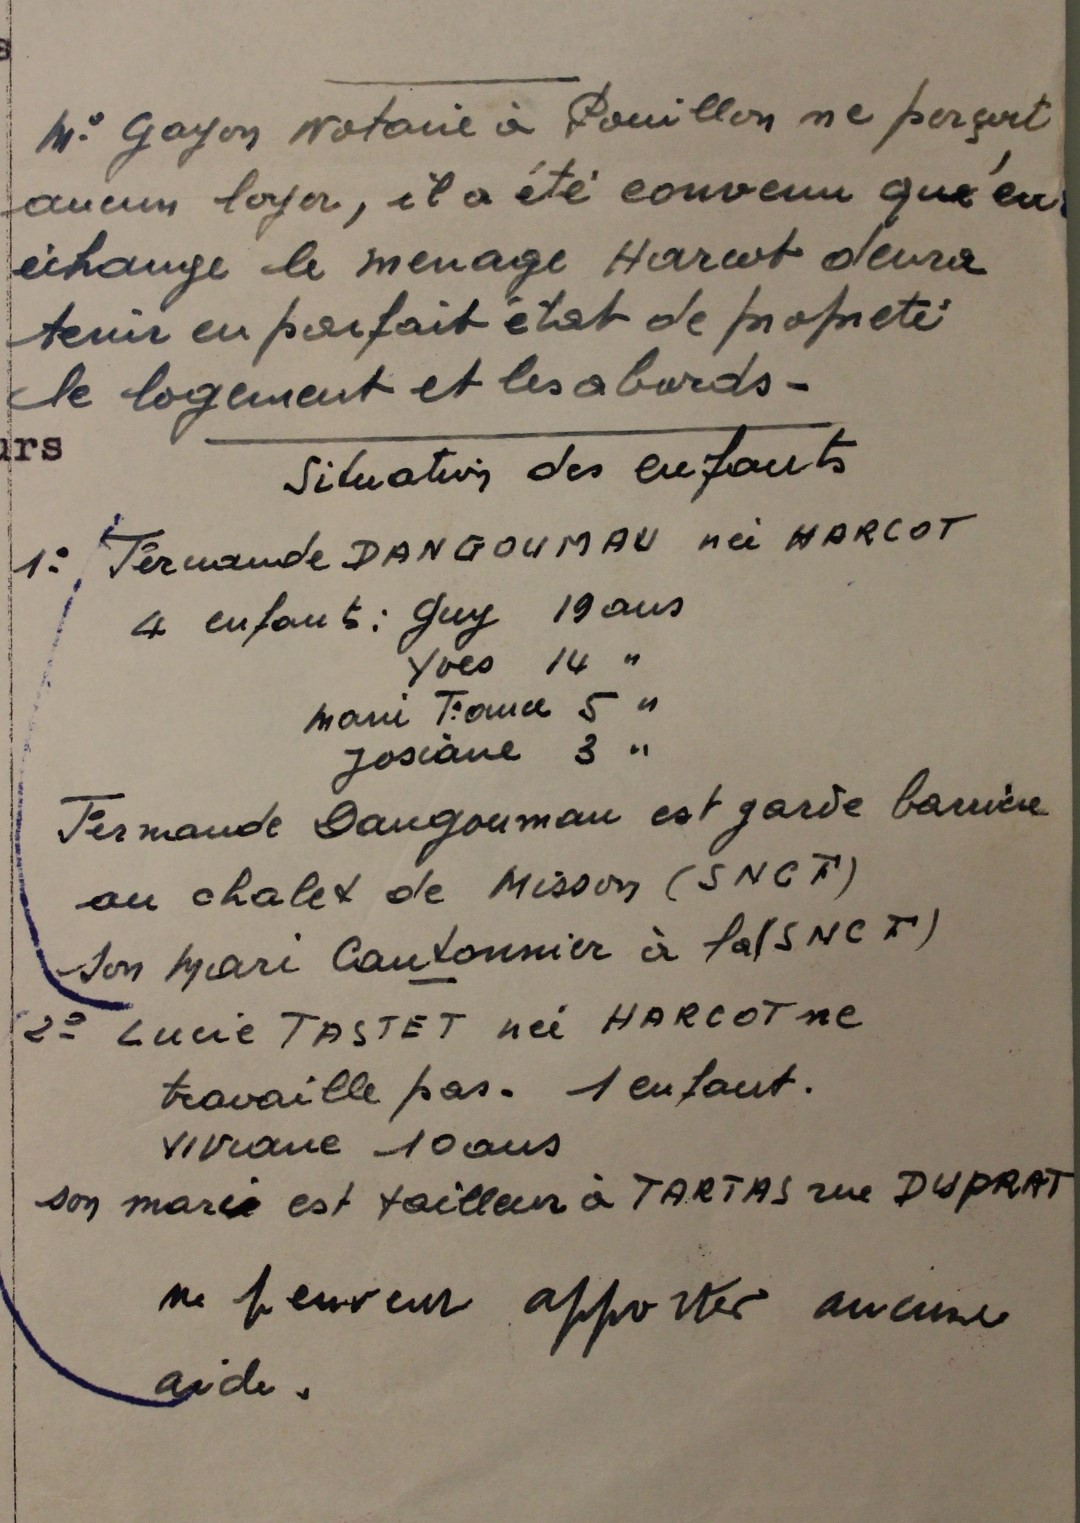 s
Me Gayon Notaire à Pouillon ne perçoit
aucun loyer, il a été convenu qu'en
échange le menage Harcot devra
tenir en parfait état de propreté
le logement et les abords -
urs
Situation des enfants
1° Fernande DANGOUMAU née HARCOT
4 enfants : Guy 19 ans
Yves 14 "
Marie France 5 "
Josiane 3 "
Fernande Dangoumau est garde barrière
au chalet de Misson (SNCF)
Son Mari Cantonnier à la (SNCF)
2° Lucie TASTET née HARCOT ne
travaille pas - 1 enfant.
Viviane 10 ans
son mari est tailleur à TARTAS rue DUPRAT
ne peuvent apporter aucune
aide.